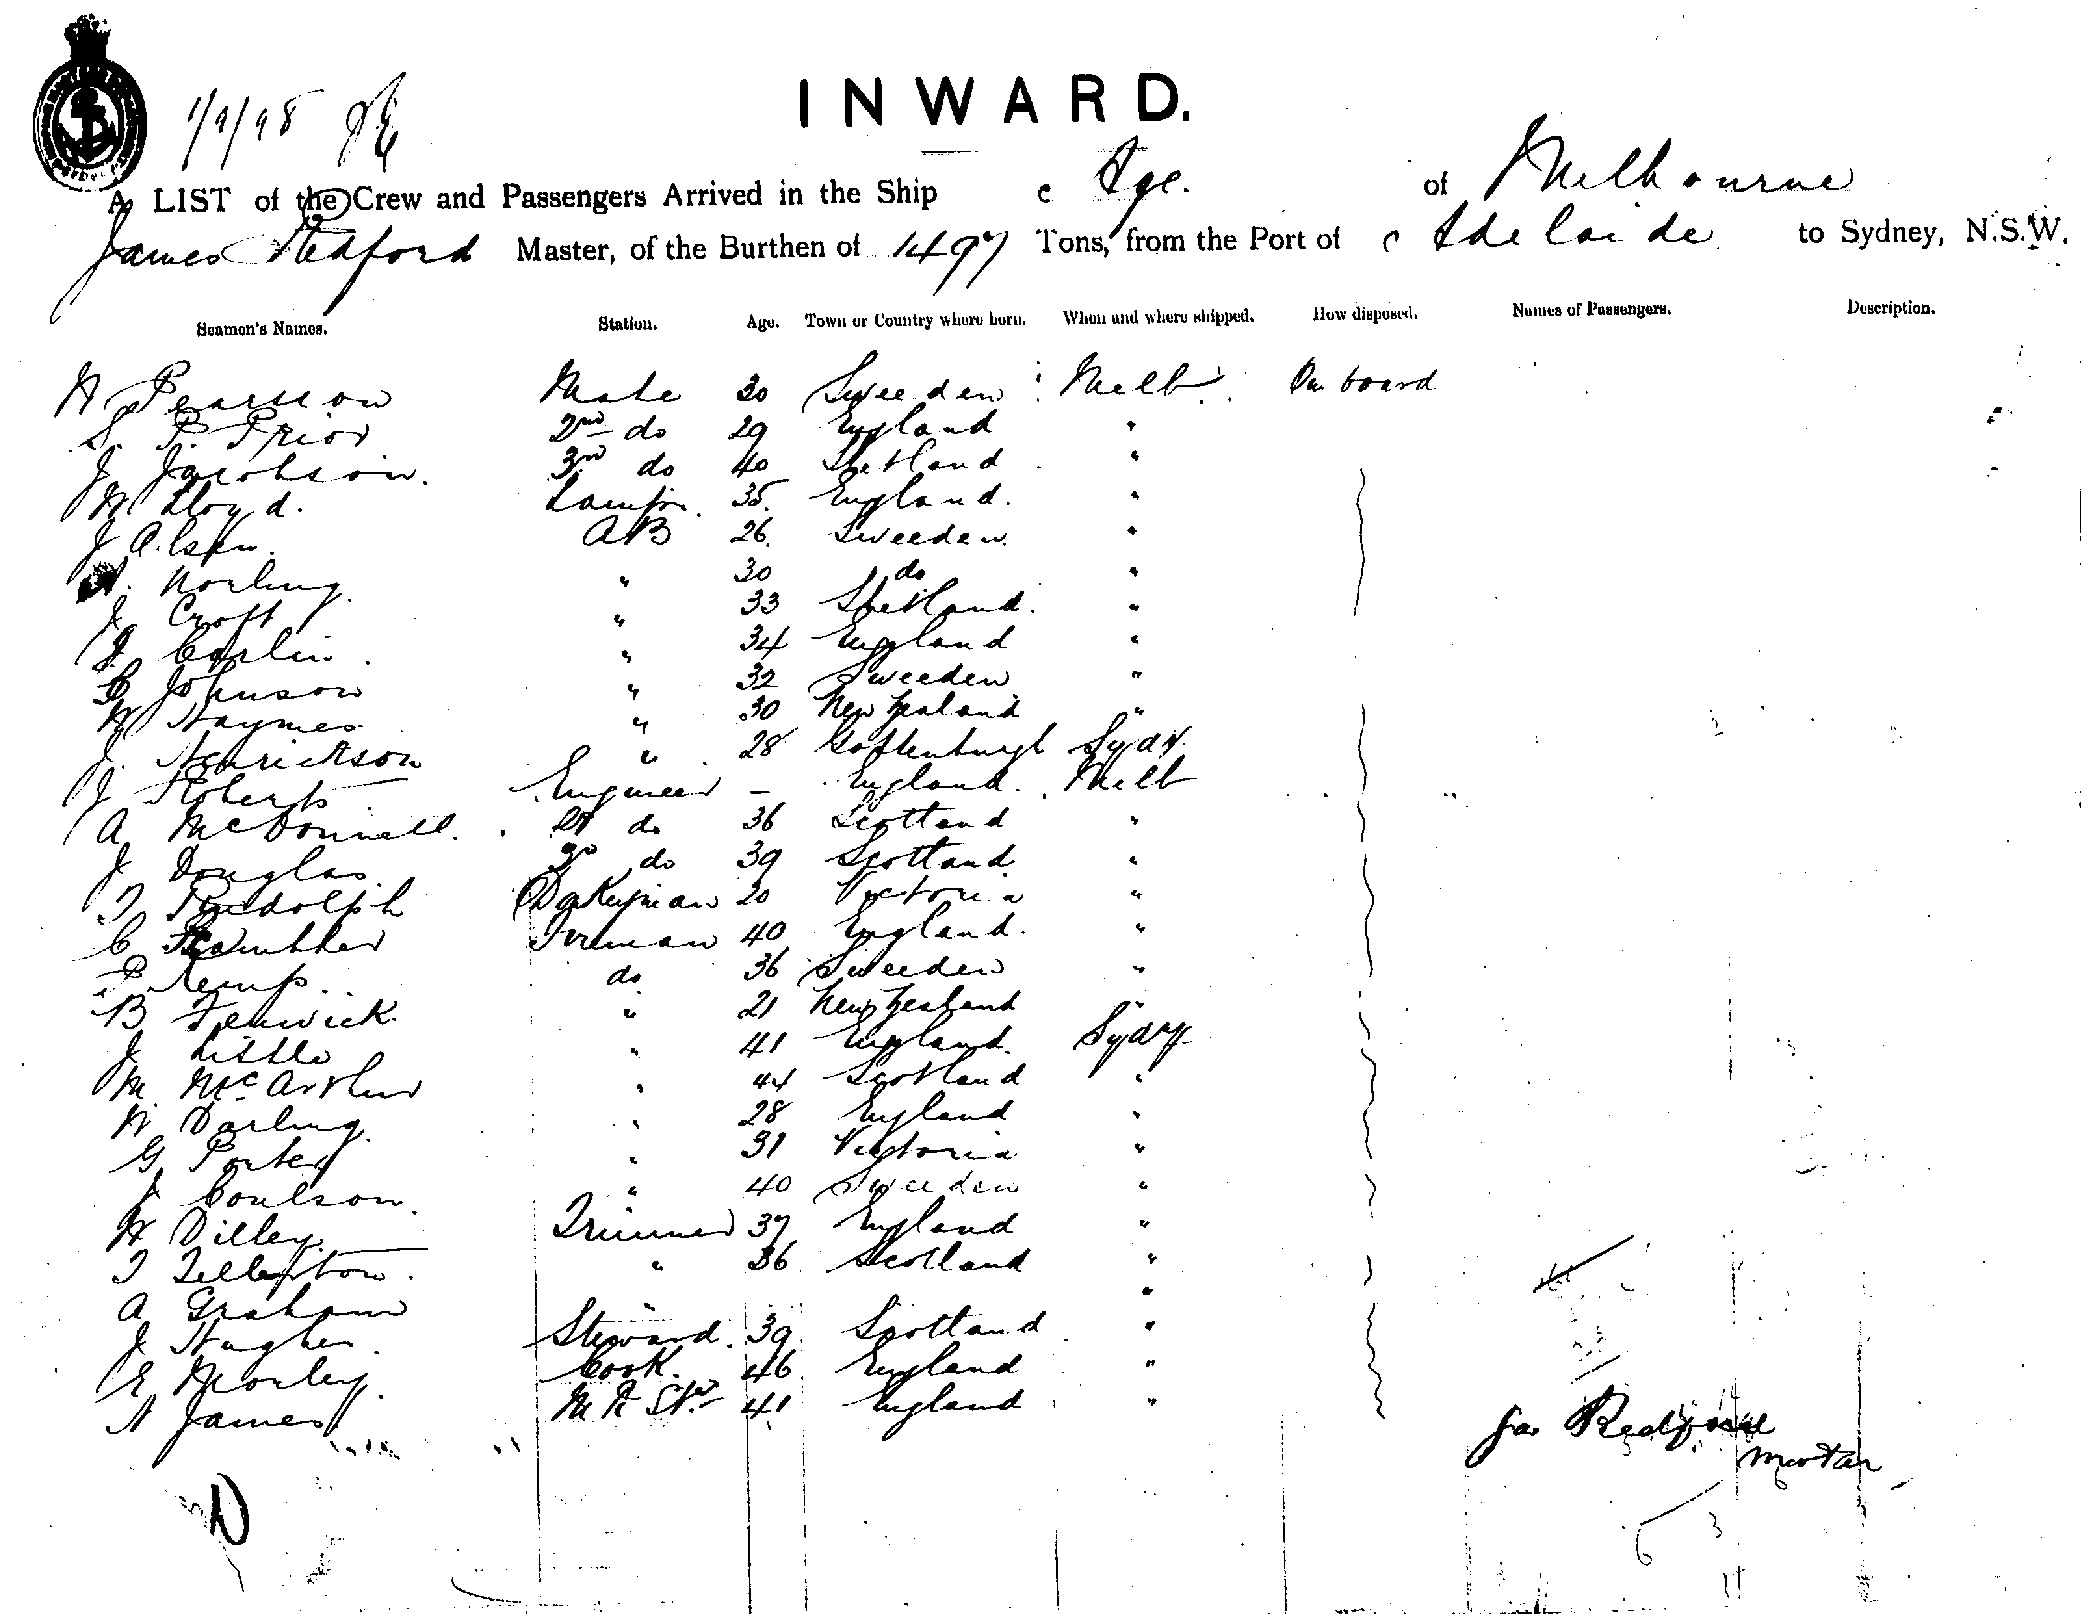 1/9/98
INWARD.
A LIST of the Crew and Passengers Arrived in the Ship Age. of Melbourne
James Redford Master, of the Burthen of 1497 Tons, from the Port of Adelaide to Sydney, N.S.W.
Seamen's Names. Station. Age. Town or Country where born. When and where shipped. How disposed. Names of Passengers. Description.
H Pearson Mate 30 Sweeden Melb. On board
S. P. Prior 2nd do 29 England "
J Jacobson. 3rd do 40 Shetland "
W Lloyd. Lamptr. 35. England. "
J Olsen. AB 26. Sweeden. "
Norling. " 30 do "
J Croft " 33 Shetland. "
J Carlin. " 34 England "
C Johnson " 32 Sweeden "
W Haymes " 30 New Zealand "
J. Henrickson " 28 Gottenburgh Sydy.
J Roberts Engineer - England. Melb
A McDonnell. do 36 Scotland "
J Douglas. 3rd do 39 Scotland "
T Rudolph Donkeyman 20 Victoria "
C Fireman 40 England. "
P Kemp. do 36 Sweeden "
B Fenwick. " 21 New Zealand "
J Little " 41 England. Sydny
M. McArthur " 44 Scotland "
W Darling. " 28 England "
G Porter " 31 Victoria "
J Coulson. " 40 Sweeden "
H Dilley. Trimmer 37 England "
T Tillerton. " 36 Scotland "
A Graham " "
J Hughes. Steward. 39 Scotland "
E Morley. Cook. 46 England "
H James M R Std. 41 England "
Jas Redford
Master